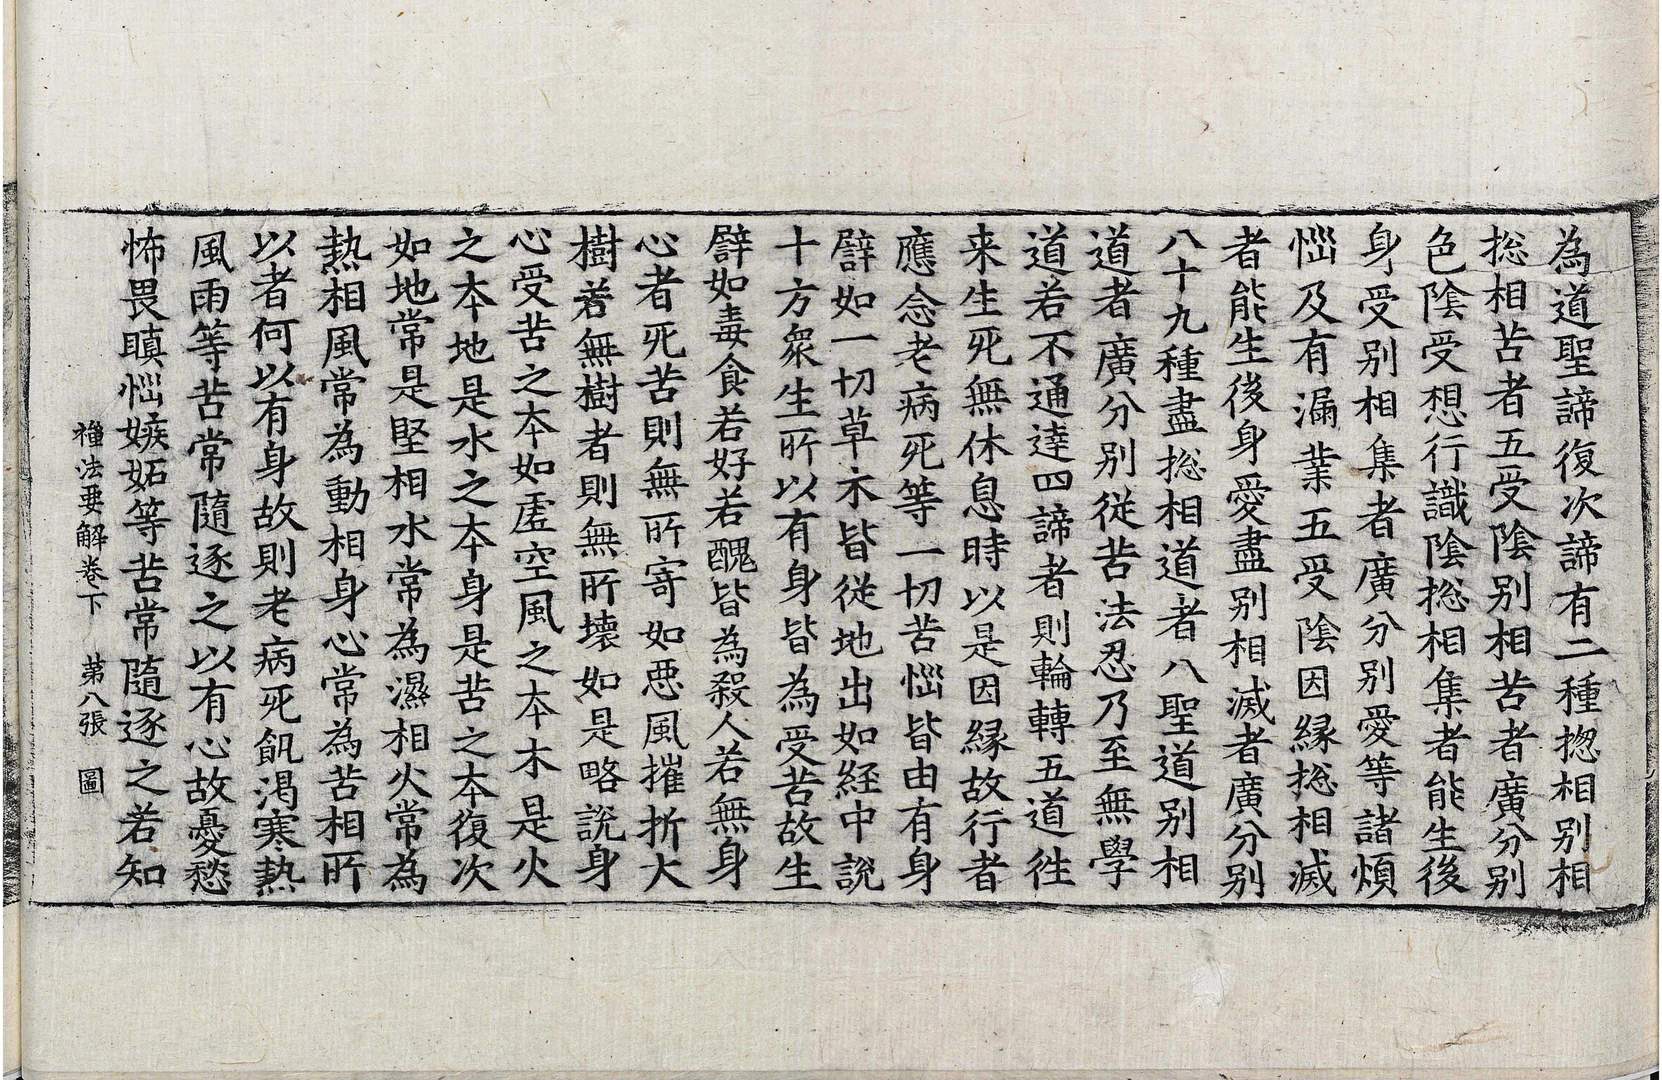 為道聖諦復次諦有二種揔相别相
揔相苦者五受陰别相苦者廣分别
色陰受想行識陰揔相集者能生後
身受别相集者廣分别愛等諸煩
惱及有漏業五受陰因縁揔相滅
者能生後身愛盡别相滅者廣分别
八十九種盡揔相道者八聖道别相
道者廣分别從苦法忍乃至無學
道若不通達四諦者則輪轉五道徃
来生死無休息時以是因縁故行者
應念老病死等一切苦惱皆由有身
譬如一切草木皆從地出如経中說
十方衆生所以有身皆為受苦故生
譬如毒食若好若醜皆為殺人若無身
心者死苦則無所寄如惡風摧折大
樹若無樹者則無所壞如是略說身
心受苦之本如虛空風之本木是火
之本地是水之本身是苦之本復次
如地常是堅相水常為濕相火常為
熱相風常為動相身心常為苦相所
以者何以有身故則老病死飢渴寒熱
風雨等苦常隨逐之以有心故憂愁
怖畏瞋惱嫉妬等苦常隨逐之若知
種法要解卷下 第八張 圖